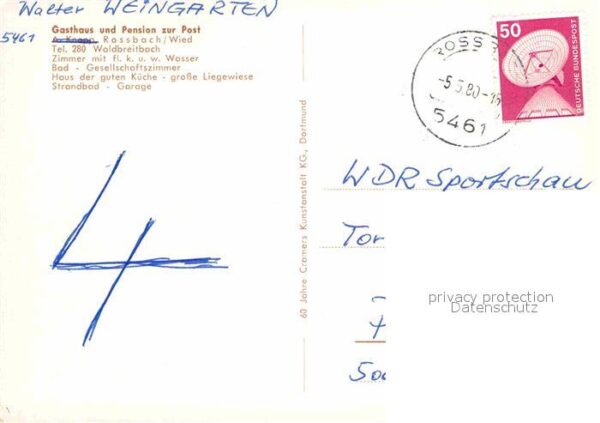 Walter WEINGARTEN
5461
Gasthaus und Pension zur Post
A. Knopp, Rossbach/Wied
Tel. 280 Waldbreitbach
Zimmer mit fl. k. u. w. Wasser
Bad - Gesellschaftszimmer
Haus der guten Küche - große Liegewiese
Strandbad - Garage
60 Jahre Cramers Kunstanstalt KG., Dortmund
4
50
DEUTSCHE BUNDESPOST
ROSSB
5461
WDR Sportschau
Tor
privacy protection
Datenschutz